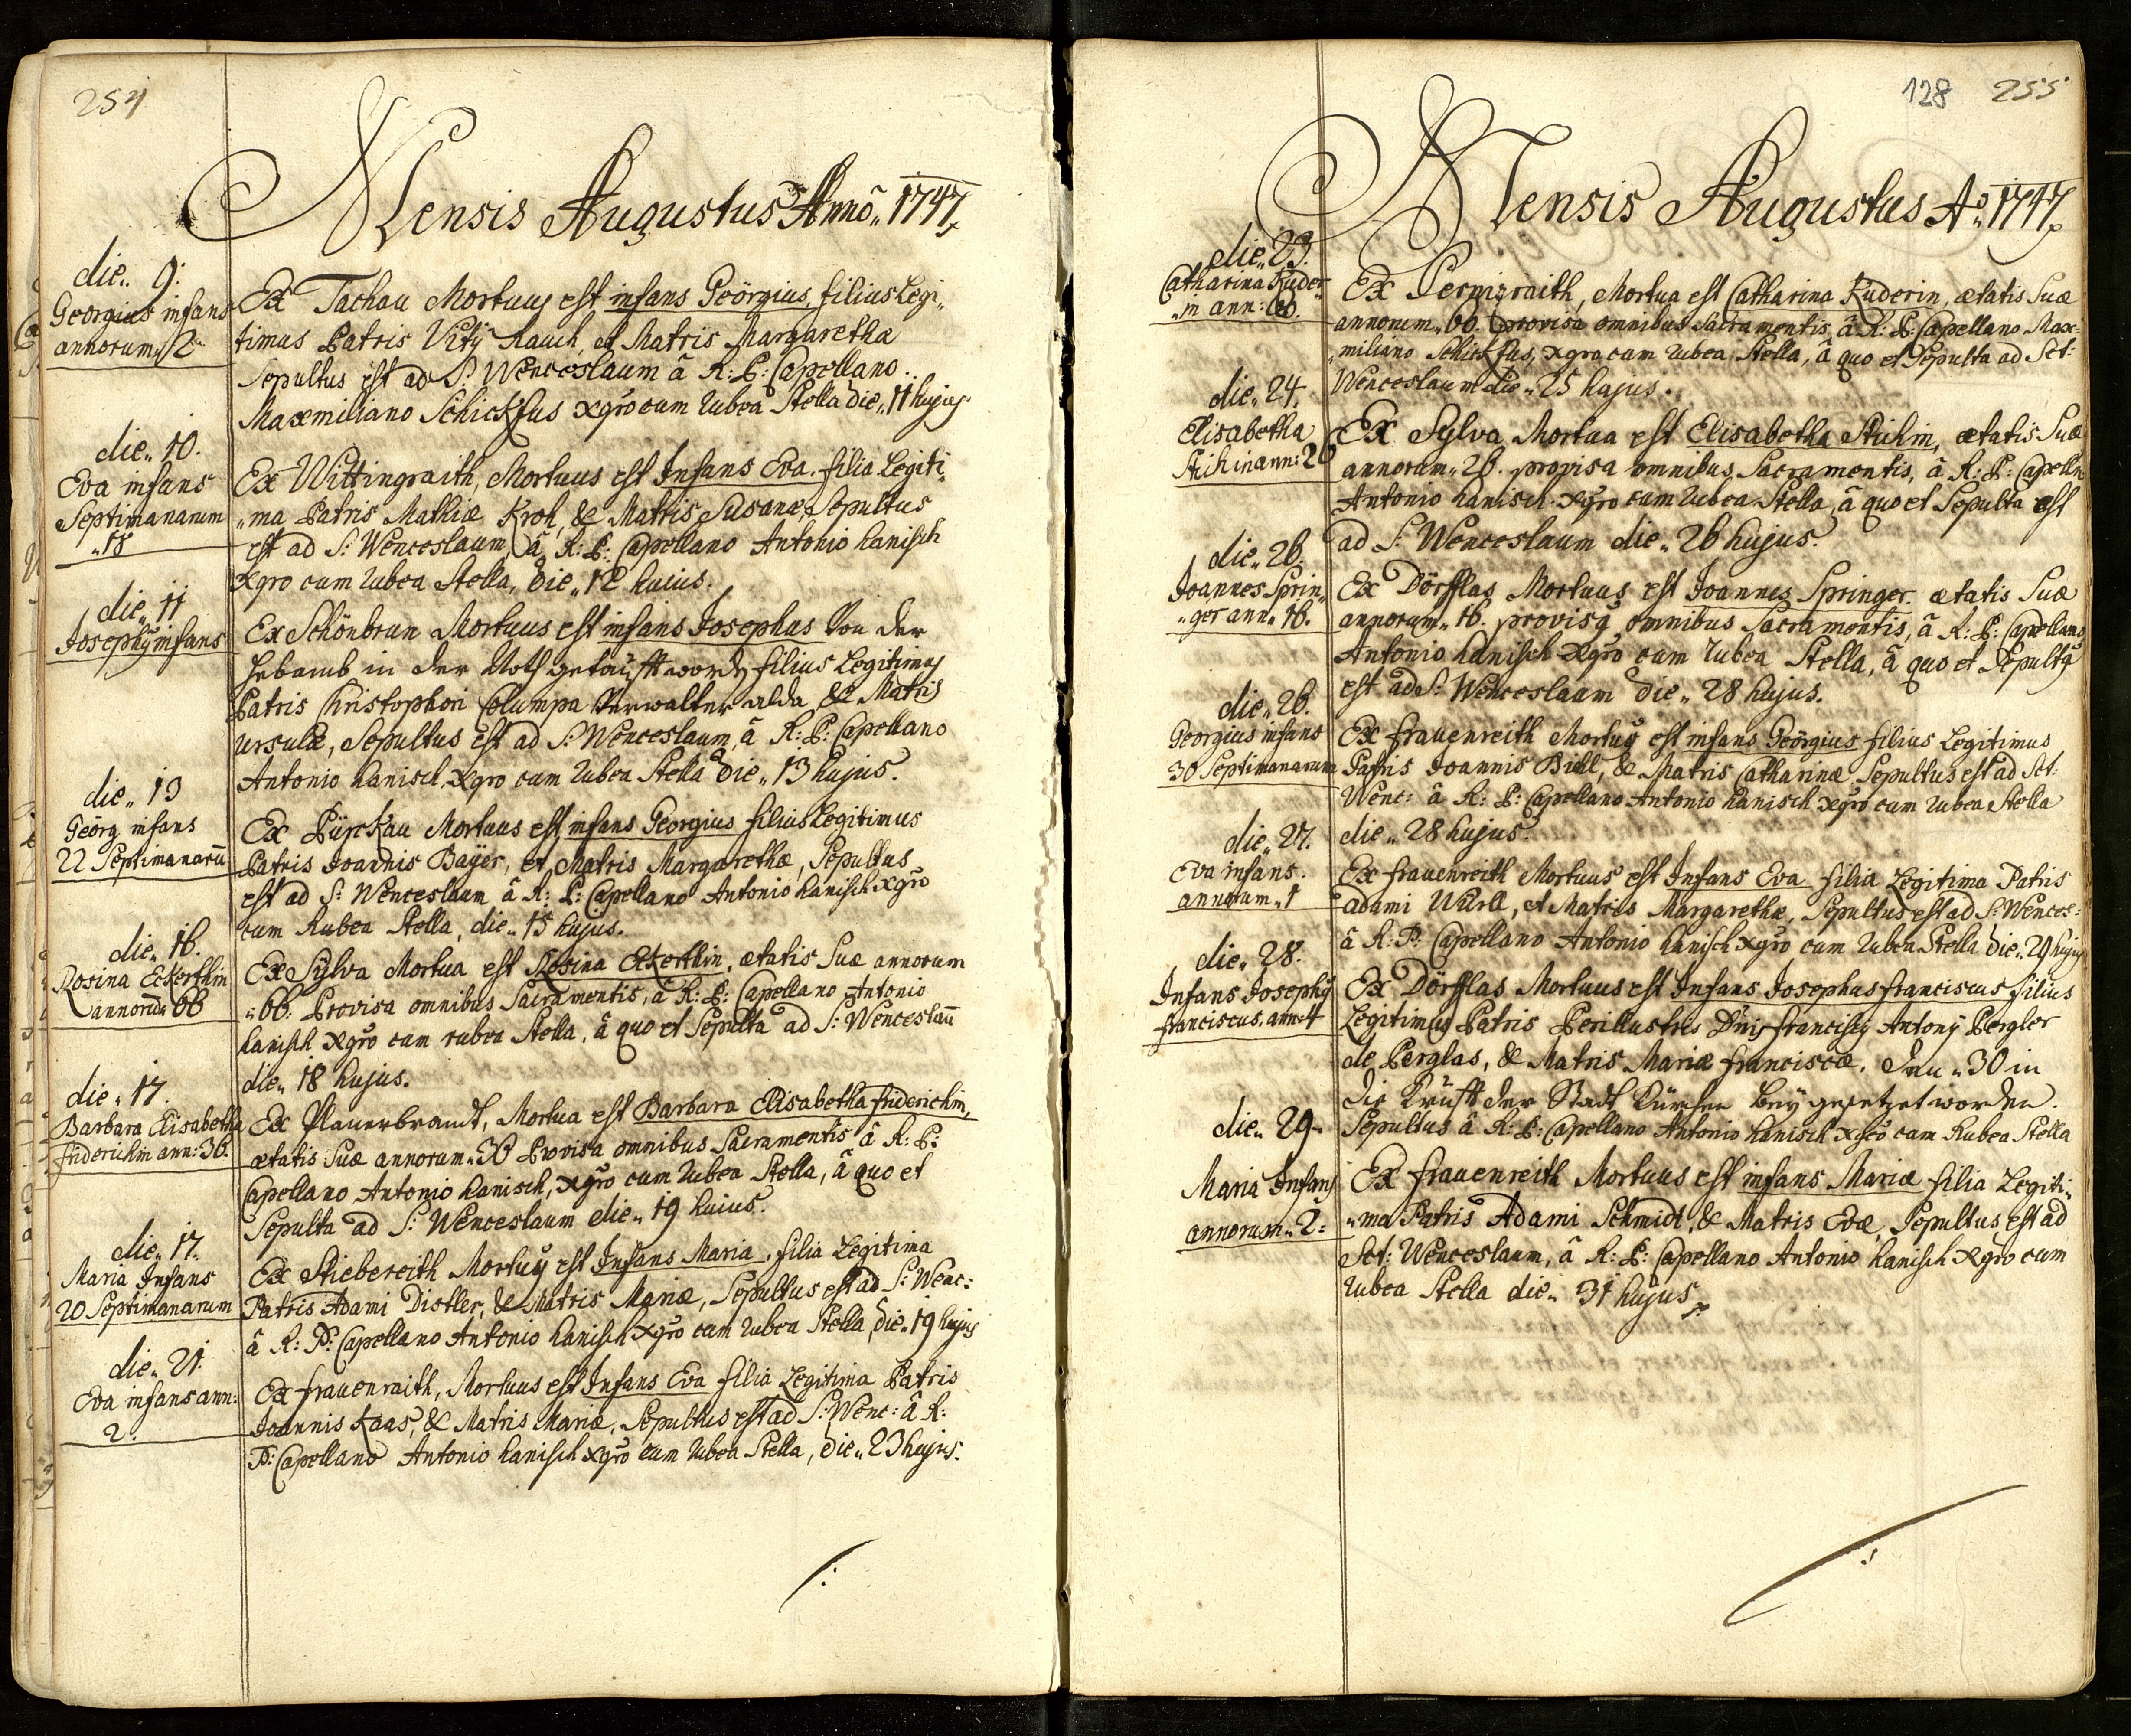 254
Mensis Augustus Annô„ 1747.
die„ 9:
Georgius infans
annorum„ 2„
Ex Tachau Mortuus est infans Geörgius, filius Legi„
timus Patris Vitÿ Rauch, et Matris Margaretha
Sepultus est ad S: Wenceslaum â R: P: Capellano
Maxmiliano Schickfus Xgro cum rubea Stella die„ 11 hujus.
die„ 10.
Eva infans
Septimanarum
„18
Ex Wittingraith, Mortuus est Infans Eva. filia Legiti„
„ma Patris Mathiæ Kroh, & Matris Susanæ, Sepultus
est ad S: Wenceslaum, â R: P: Capellano Antonio hanisch
Xgro cum rubea Stella, die„ 12 huius.
die„ 11
Josephus infans
Ex Schönbrun Mortuus est infans Josephus Von der
hebamb in der Noth getaufft worden filius Legitimus
Patris Christophori Columpa Verwalter alda & Matris
Ursulæ, Sepultus est ad S: Wenceslaum, â R: P: Capellano
Antonio hanisch Xgro cum rubea Stella die„ 13 hujus.
die„ 13
Geörg infans
22 Septimanarū
Ex Pürckau Mortuus est infans Georgius filius Legitimus
Patris Joannis Baÿer, et Matris Margarethæ, Sepultus
est ad S: Wenceslaum â R: P: Capellano Antonio hanisch Xgro
cum Rubea Stella, die„ 15 hujus.
die„ 16.
Rosina Eckerthin
annorū„ 66
Ex Sÿlva Mortua est Rosina Eckerthin, ætatis Suæ annorum
„66. Provisa omnibus Sacramentis, â R: P: Capellano Antonio
hanisch Xgro cum rubea Stella, â quo et Sepulta ad S: Wenceslaū
die„ 18 hujus.
die„ 17.
Barbara Elisabetha
friderichin ann: 36.
Ex Plauerbrandt, Mortua est Barbara Elisabetha friderichin,
ætatis Suæ annorum„ 36 Provisa omnibus Sacramentis â R: P:
Capellano Antonio hanisch, Xgro cum rubea Stella, â quo et
Sepulta ad S: Wenceslaum die„ 19 huius.
die„ 17.
Maria Infans
20 Septimanarum
Ex Stiebereith Mortuus est Infans Maria, filia Legitima
Patris Adami Distler, & Matris Mariæ, Sepultus est ad S: Wenc:
â R: P: Capellano Antonio hanisch Xgro cum rubea Stella, die„ 19 hujus
die„ 21.
Eva infans ann:
2.
Ex frauenraith, Mortuus est Infans Eva filia Legitima Patris
Joannis Kaas, & Matris Mariæ, Sepultus est ad S: Wenc: â R:
P: Capellano Antonio hanisch Xgro cum rubea Stella, die„ 23 hujus.
128 255
Mensis Augustus Aō„ 1747.
die„ 23.
Catharina Kuder„
„in ann: 60.
Ex, Mortua est Catharina Kuderin, ætatis Suæ
annorum„ 60. provisa omnibus Sacramentis, â R: P: Capellano Max„
„miliano Schickfus, Xgro cum rubea Stella, â quo et Sepulta ad Sct:
Wenceslaum die„ 25 hujus.
die„ 24.
Elisabetha
Stichin ann: 26
Ex Sÿlva Mortua est Elisabetha Stichin, ætatis Suæ
annorum„ 26. provisa omnibus Sacramentis, â R: P: Capelln
Antonio hanisch Xgro cum rubea Stella, â quo et Sepulta est
ad S: Wenceslaum die„ 26 hujus.
die„ 26.
Joannes Sprin„
„ger ann„ 16.
Ex Dörfflas Mortuus est Joannes Springer. ætatis Suæ
annorum„ 16. provisus omnibus Sacramentis, â R: P: Capellano
Antonio hanisch Xgro cum rubea Stella, â quo et Sepultus
est ad S: Wenceslaum die„ 28 hujus.
die„ 26.
Georgius infans
30 Septimanarum
Ex frauenreith Mortuus est infans Geörgius filius Legitimus
Patris Joannis Bidl, & Matris Catharinæ Sepultus est ad Sct:
Wenc: â R: P: Capellano Antonio hanisch Xgro cum rubea Stella
die„ 28 hujus.
die„ 27.
Eva infans.
annorum„ 1
Ex frauenreith Mortuus est Infans Eva filia Legitima Patris
Adami, et Matris Margarethæ, Sepultus est ad S: Wences:
â R: P: Capellano Antonio hanisch Xgro cum rubea Stella die„ 29 hujus
die„ 28.
Infans Josephus
franciscus. ann: 1
Ex Dörfflas Mortuus est Infans Josephus franciscus filius
Legitimus Patris Perillustris Dñi francisci Antonÿ Pergler
de Perglas, & Matris Mariæ franciscæ. den„ 30 in
die Krüfft der Stadt Kürchen beÿ gesetzet worden.
Sepultus â R: P: Capellano Antonio hanisch Xgro cum Rubea Stella
die„ 29.
Maria Infans
annorum„ 2:
Ex frauenreith Mortuus est infans Maria filia Legiti„
„ma Patris Adami Schmidt, & Matris Evæ, Sepultus est ad
Sct: Wenceslaum, â R: P: Capellano Antonio hanisch Xgro cum
rubea Stella die„ 31 hujus